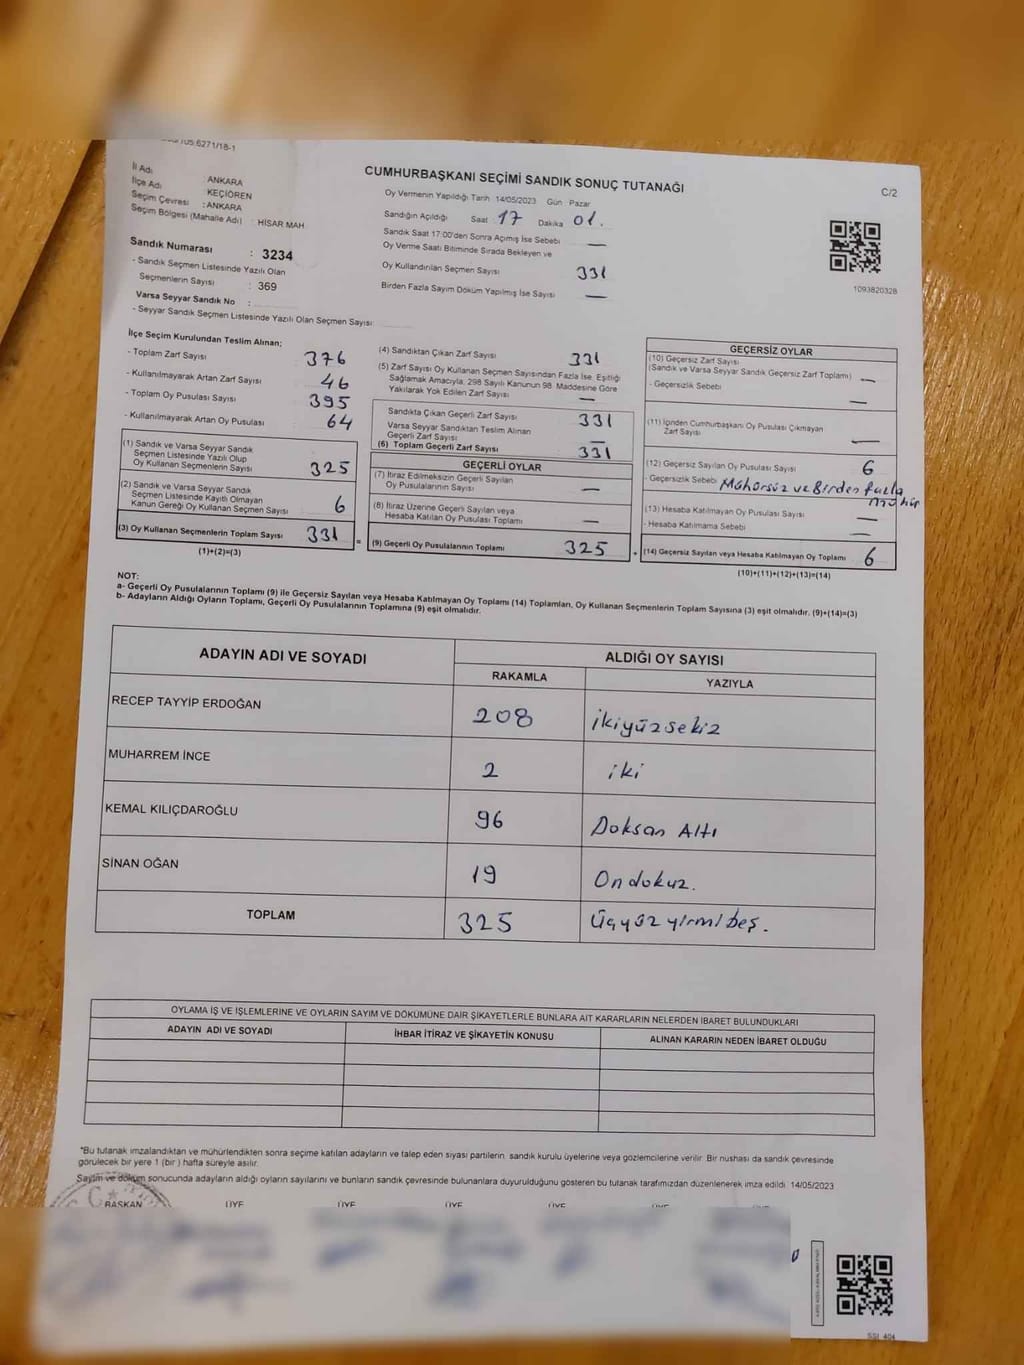 6271/18-1
CUMHURBAŞKANI SEÇİMİ SANDIK SONUÇ TUTANAĞI
C/2
İl Adı : ANKARA
İlçe Adı : KEÇİÖREN
Seçim Çevresi : ANKARA
Seçim Bölgesi (Mahalle Adı) : HİSAR MAH
Sandık Numarası : 3234
- Sandık Seçmen Listesinde Yazılı Olan
Seçmenlerin Sayısı : 369
Varsa Seyyar Sandık No :
- Seyyar Sandık Seçmen Listesinde Yazılı Olan Seçmen Sayısı:
Oy Vermenin Yapıldığı Tarih 14/05/2023 Gün : Pazar
Sandığın Açıldığı Saat 17 Dakika 01.
Sandık Saat 17:00'den Sonra Açımış İse Sebebi —
Oy Verme Saati Bitiminde Sırada Bekleyen ve
Oy Kullandırılan Seçmen Sayısı 331
Birden Fazla Sayım Döküm Yapılmış İse Sayısı —
1093820328
İlçe Seçim Kurulundan Teslim Alınan;
- Toplam Zarf Sayısı 376
- Kullanılmayarak Artan Zarf Sayısı 46
- Toplam Oy Pusulası Sayısı 395
- Kullanılmayarak Artan Oy Pusulası : 64
(1) Sandık ve Varsa Seyyar Sandık
Seçmen Listesinde Yazılı Olup
Oy Kullanan Seçmenlerin Sayısı 325
(2) Sandık ve Varsa Seyyar Sandık
Seçmen Listesinde Kayıtlı Olmayan
Kanun Gereği Oy Kullanan Seçmen Sayısı 6
(3) Oy Kullanan Seçmenlerin Toplam Sayısı 331
(1)+(2)=(3)
(4) Sandıktan Çıkan Zarf Sayısı 331
(5) Zarf Sayısı Oy Kullanan Seçmen Sayısından Fazla İse, Eşitliği
Sağlamak Amacıyla, 298 Sayılı Kanunun 98. Maddesine Göre
Yakılarak Yok Edilen Zarf Sayısı —
Sandıkta Çıkan Geçerli Zarf Sayısı 331
Varsa Seyyar Sandıktan Teslim Alınan
Geçerli Zarf Sayısı —
(6) Toplam Geçerli Zarf Sayısı 331
GEÇERLİ OYLAR
(7) İtiraz Edilmeksizin Geçerli Sayılan
Oy Pusulalarının Sayısı —
(8) İtiraz Üzerine Geçerli Sayılan veya
Hesaba Katılan Oy Pusulası Toplamı —
= (9) Geçerli Oy Pusulalarının Toplamı 325
GEÇERSİZ OYLAR
(10) Geçersiz Zarf Sayısı
(Sandık ve Varsa Seyyar Sandık Geçersiz Zarf Toplamı) —
- Geçersizlik Sebebi —
(11) İçinden Cumhurbaşkanı Oy Pusulası Çıkmayan
Zarf Sayısı —
(12) Geçersiz Sayılan Oy Pusulası Sayısı 6
- Geçersizlik Sebebi Mühürsüz ve Birden fazla
mühür
(13) Hesaba Katılmayan Oy Pusulası Sayısı —
- Hesaba Katılmama Sebebi —
+ (14) Geçersiz Sayılan veya Hesaba Katılmayan Oy Toplamı 6
(10)+(11)+(12)+(13)=(14)
NOT:
a- Geçerli Oy Pusulalarının Toplamı (9) ile Geçersiz Sayılan veya Hesaba Katılmayan Oy Toplamı (14) Toplamları, Oy Kullanan Seçmenlerin Toplam Sayısına (3) eşit olmalıdır. (9)+(14)=(3)
b- Adayların Aldığı Oyların Toplamı, Geçerli Oy Pusulalarının Toplamına (9) eşit olmalıdır.
ADAYIN ADI VE SOYADI ALDIĞI OY SAYISI
RAKAMLA YAZIYLA
RECEP TAYYİP ERDOĞAN 208 ikiyüzsekiz
MUHARREM İNCE 2 iki
KEMAL KILIÇDAROĞLU 96 Doksan Altı
SİNAN OĞAN 19 Ondokuz.
TOPLAM 325 Üçyüzyirmibeş.
OYLAMA İŞ VE İŞLEMLERİNE VE OYLARIN SAYIM VE DÖKÜMÜNE DAİR ŞİKAYETLERLE BUNLARA AİT KARARLARIN NELERDEN İBARET BULUNDUKLARI
ADAYIN ADI VE SOYADI İHBAR İTİRAZ VE ŞİKAYETİN KONUSU ALINAN KARARIN NEDEN İBARET OLDUĞU
*Bu tutanak imzalandıktan ve mühürlendikten sonra seçime katılan adayların ve talep eden siyasi partilerin, sandık kurulu üyelerine veya gözlemcilerine verilir. Bir nushası da sandık çevresinde
görülecek bir yere 1 (bir) hafta süreyle asılır.
Sayım ve döküm sonucunda adayların aldığı oyların sayılarını ve bunların sandık çevresinde bulunanlara duyurulduğunu gösteren bu tutanak tarafımızdan düzenlenerek imza edildi. 14/05/2023
BAŞKAN ÜYE ÜYE ÜYE ÜYE ÜYE ÜYE
SSI 404